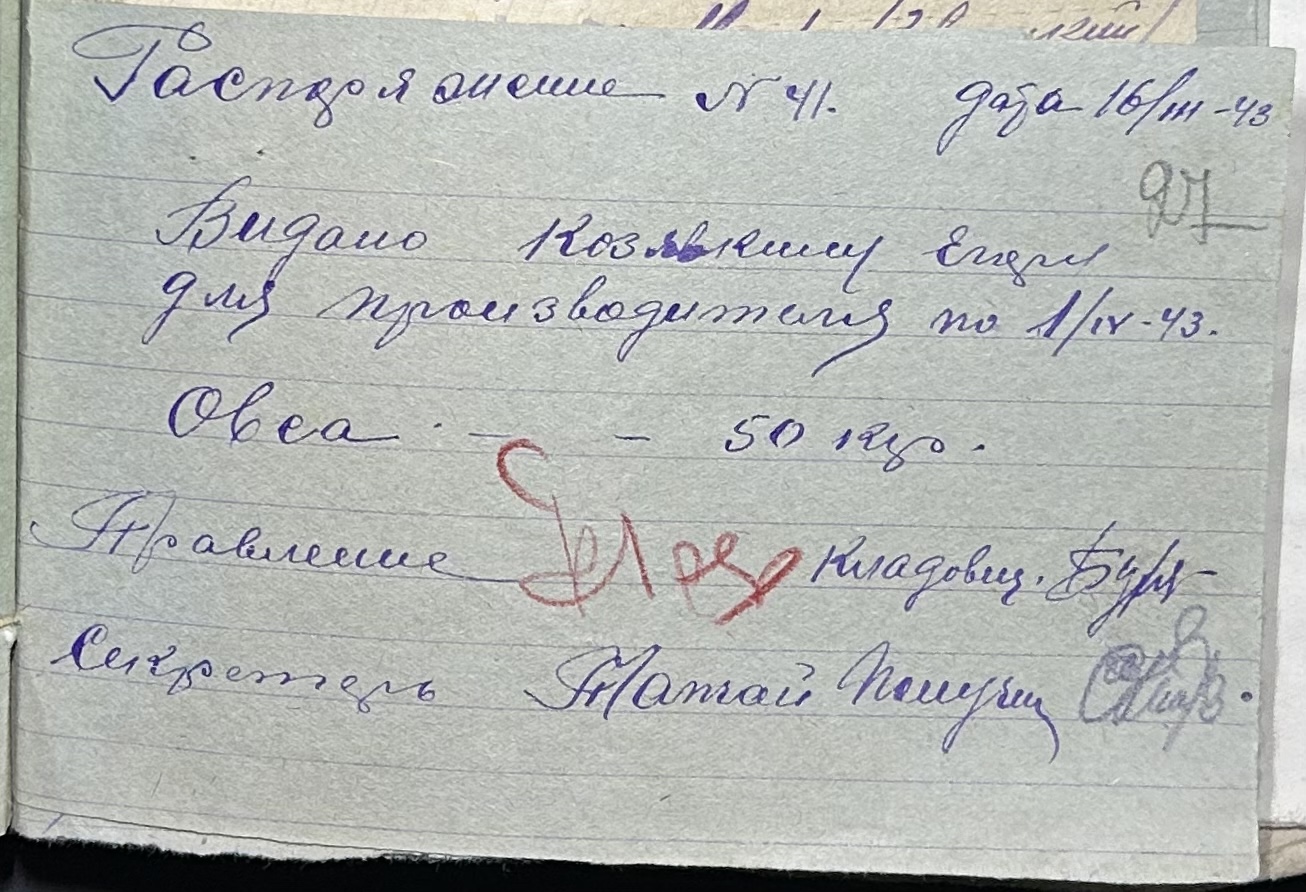 Распоряжение № 41. дата 16/III-43
97
Видано Козявкину Егору
для производителя по 1/IV-43.
Овса - - 50 кгр.
Правление Кладовщ.
Секретарь Получил